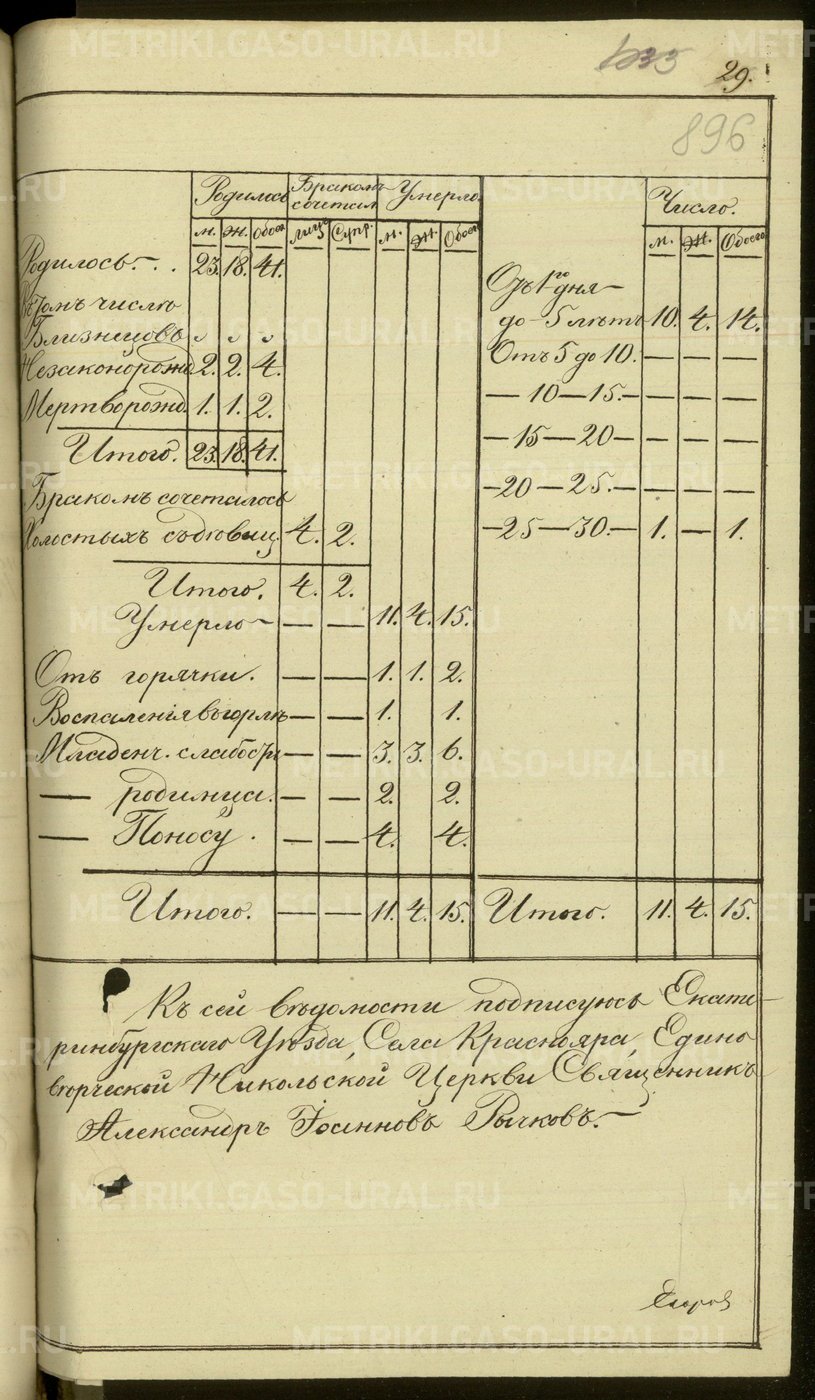 29.
896
Родилось Бракомъ сочетал. Умерло.
м. Ж. Обоег. Лицъ Супр. м. Ж. Обоег.
Родилось. 23. 18. 41.
Въ томъ числѣ
Близнецовъ " " "
Незаконорожд. 2. 2. 4.
Мерторожд. 1. 1. 2.
Итого. 23. 18. 41.
Бракомъ сочеталось
Холостыхъ съ дѣвиц. 4. 2.
Итого. 4. 2.
Умерло — — — 11. 4. 15.
Отъ горячки. — — 1. 1. 2.
Воспаленія въ горлѣ — — 1. 1.
Младенч. слабости — — 3. 3. 6.
— родимца. — — 2. 2.
— Поносу. — — 4. 4.
Итого. — — 11. 4. 15.
Число.
м. Ж. Обоего
Отъ 1го дня —
до 5 лѣтъ 10. 4. 14.
Отъ 5 до 10. — — —
— 10 — 15. — — — —
— 15 — 20 — — — —
— 20 — 25. — — — —
— 25 — 30. — 1. — 1.
Итого. 11. 4. 15.
Къ сей вѣдомости подписуюсь Екате-
ринбургскаго Уѣзда, Села Краснояра, Едино
вѣрческой Никольской Церкви Священникъ
Александръ Іоанновъ Рычковъ. —
METRIKI.GASO-URAL.RU